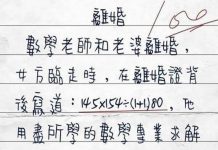 離婚
100
數學老師和老婆離婚，
女方臨走時，在離婚證背
後寫道：145×154÷(1+1)80，他
用盡所學的數學專業求解